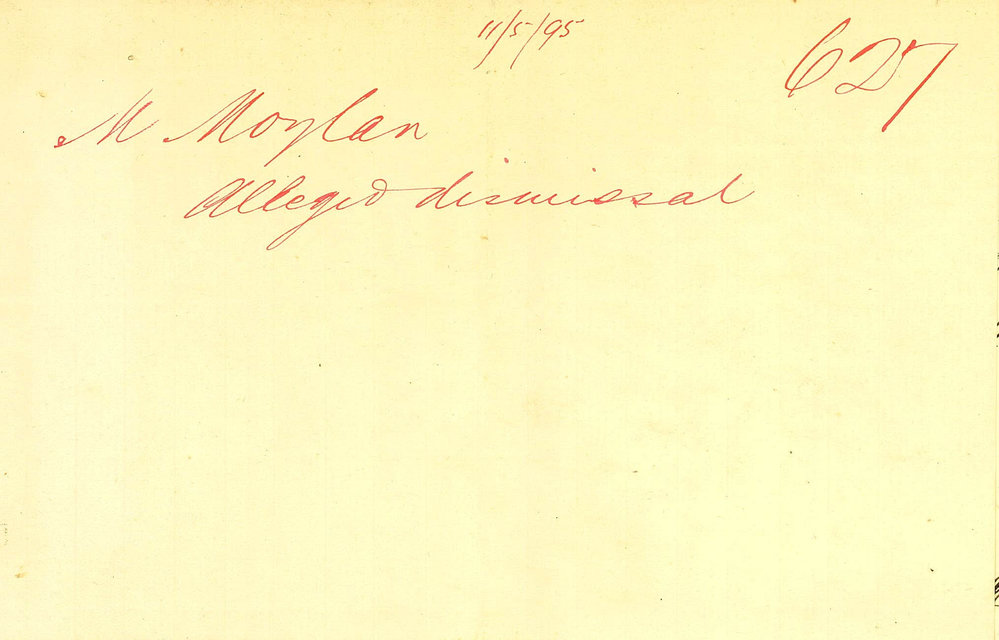 11/5/95
627
M Moylan
Alleged dismissal